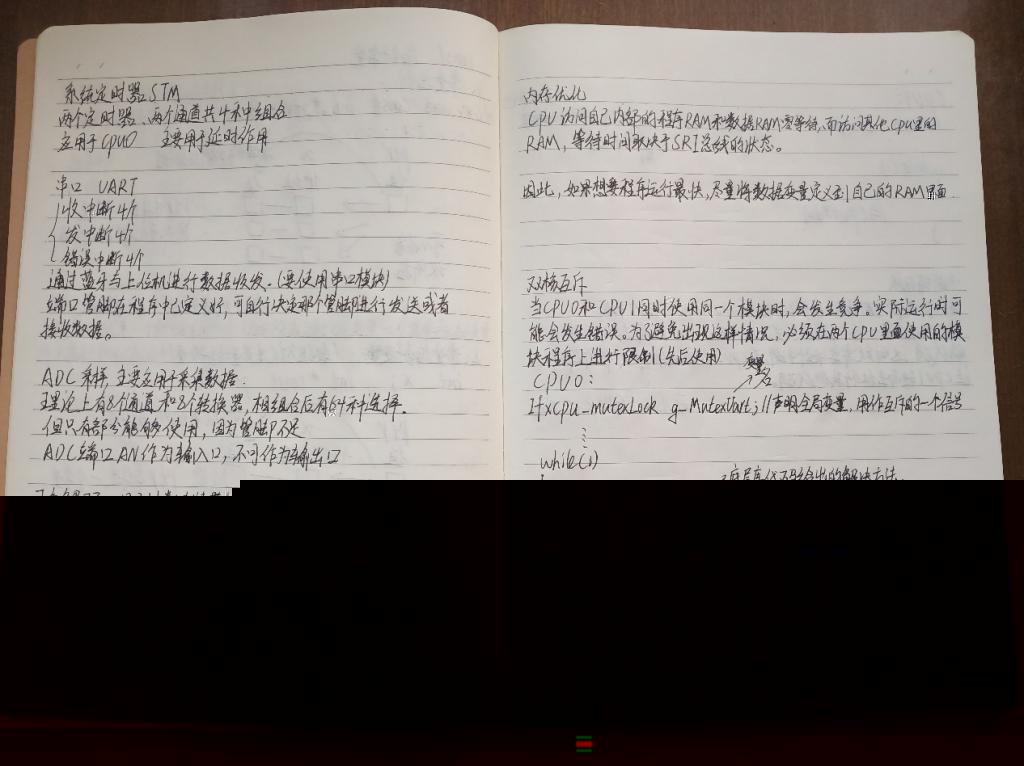 系统定时器STM
两个定时器、两个通道共4种中组合
应用于CPU0 主要用于延时作用
串口 UART
收中断4个
发中断4个
错误中断4个
通过蓝牙与上位机进行数据收发.(要使用串口模块)
端口管脚在程序中已定义好,可自行决定那个管脚进行发送或者
接收数据。
ADC采样,主要应用于采集数据.
理论上有8个通道和8个转换器,相组合后有64种选择.
但只有部分能够使用,因为管脚P不足
ADC端口AN作为输入口,不可作为输出口
内存优化
CPU访问自己内部的程序RAM和数据RAM零等待,而访问其他CPU里的
RAM,等待时间取决于SRI总线的状态。
因此,如果想要程序运行最快,尽量将数据变量定义到自己的RAM里面.
双核互斥
当CPU0和CPU1同时使用同一个模块时,会发生竞争。实际运行时可
能会发生错误。为了避免出现这样情况,必须在两个CPU里面使用的模
块程序上进行限制(先后使用)
变量名
CPU0:
IfxCpu_mutexLock g_MutexVart;//声明全局变量,用作互斥的一个信号
while(1)